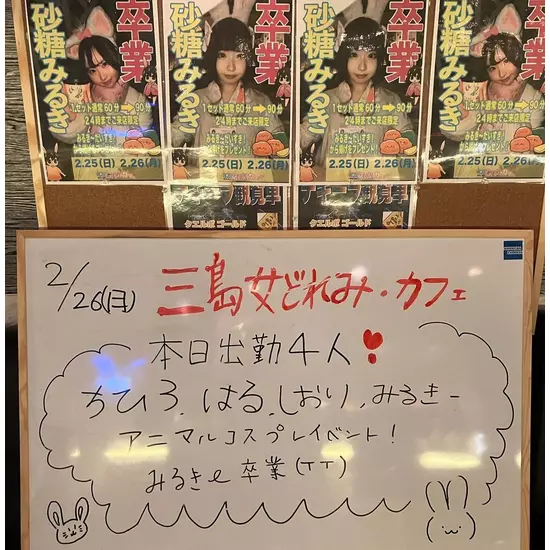 卒業
砂糖みるき
1セット通常60分→90分
24時までご来店限定
みるきーだいすき!
から揚げをプレゼント!
2.25(日) 2.26(月)
卒業
砂糖みるき
1セット通常60分→90分
24時までご来店限定
2.25(日) 2.26(月)
卒業
砂糖みるき
1セット通常60分→90分
24時までご来店限定
2.25(日) 2.26(月)
卒業
砂糖みるき
1セット通常60分→90分
24時までご来店限定
2.25(日) 2.26(月)
クエルボ ゴールド
クエルボ ゴールド
2/26(月) 三島女どれみ・カフェ
本日出勤4人
ちひろ、はる、しおり、みるきー
アニマルコスプレイベント!
みるきぃ卒業(TT)